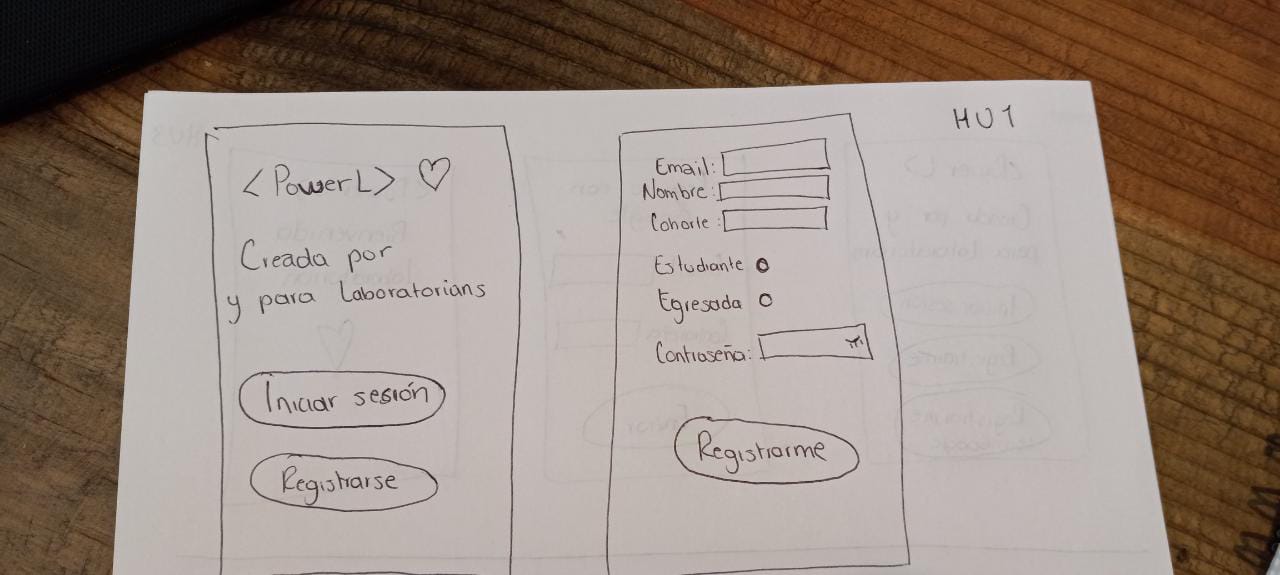 HU1
<PowerL> ♡
Creada por
y para Laboratorians
Iniciar sesión
Registrarse
Email:
Nombre:
Cohorte:
Estudiante
Egresada
Contraseña:
Registrarme